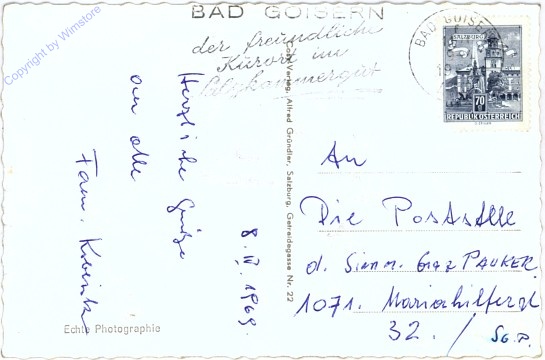 Copyright by Winstore
BAD GOISERN
der freundliche
Kurort im
Salzkammergut
BAD GOISE
SALZBURG
70
REPUBLIK ÖSTERREICH
Herzliche Grüße
an alle
Fam.
8. IV. 1969
Echte Photographie
Cosy-Verlag, Alfred Gründler, Salzburg, Getreidegasse Nr. 22
An
Die Poststelle
d. PAUKER
1071. Mariahilferst
32. /